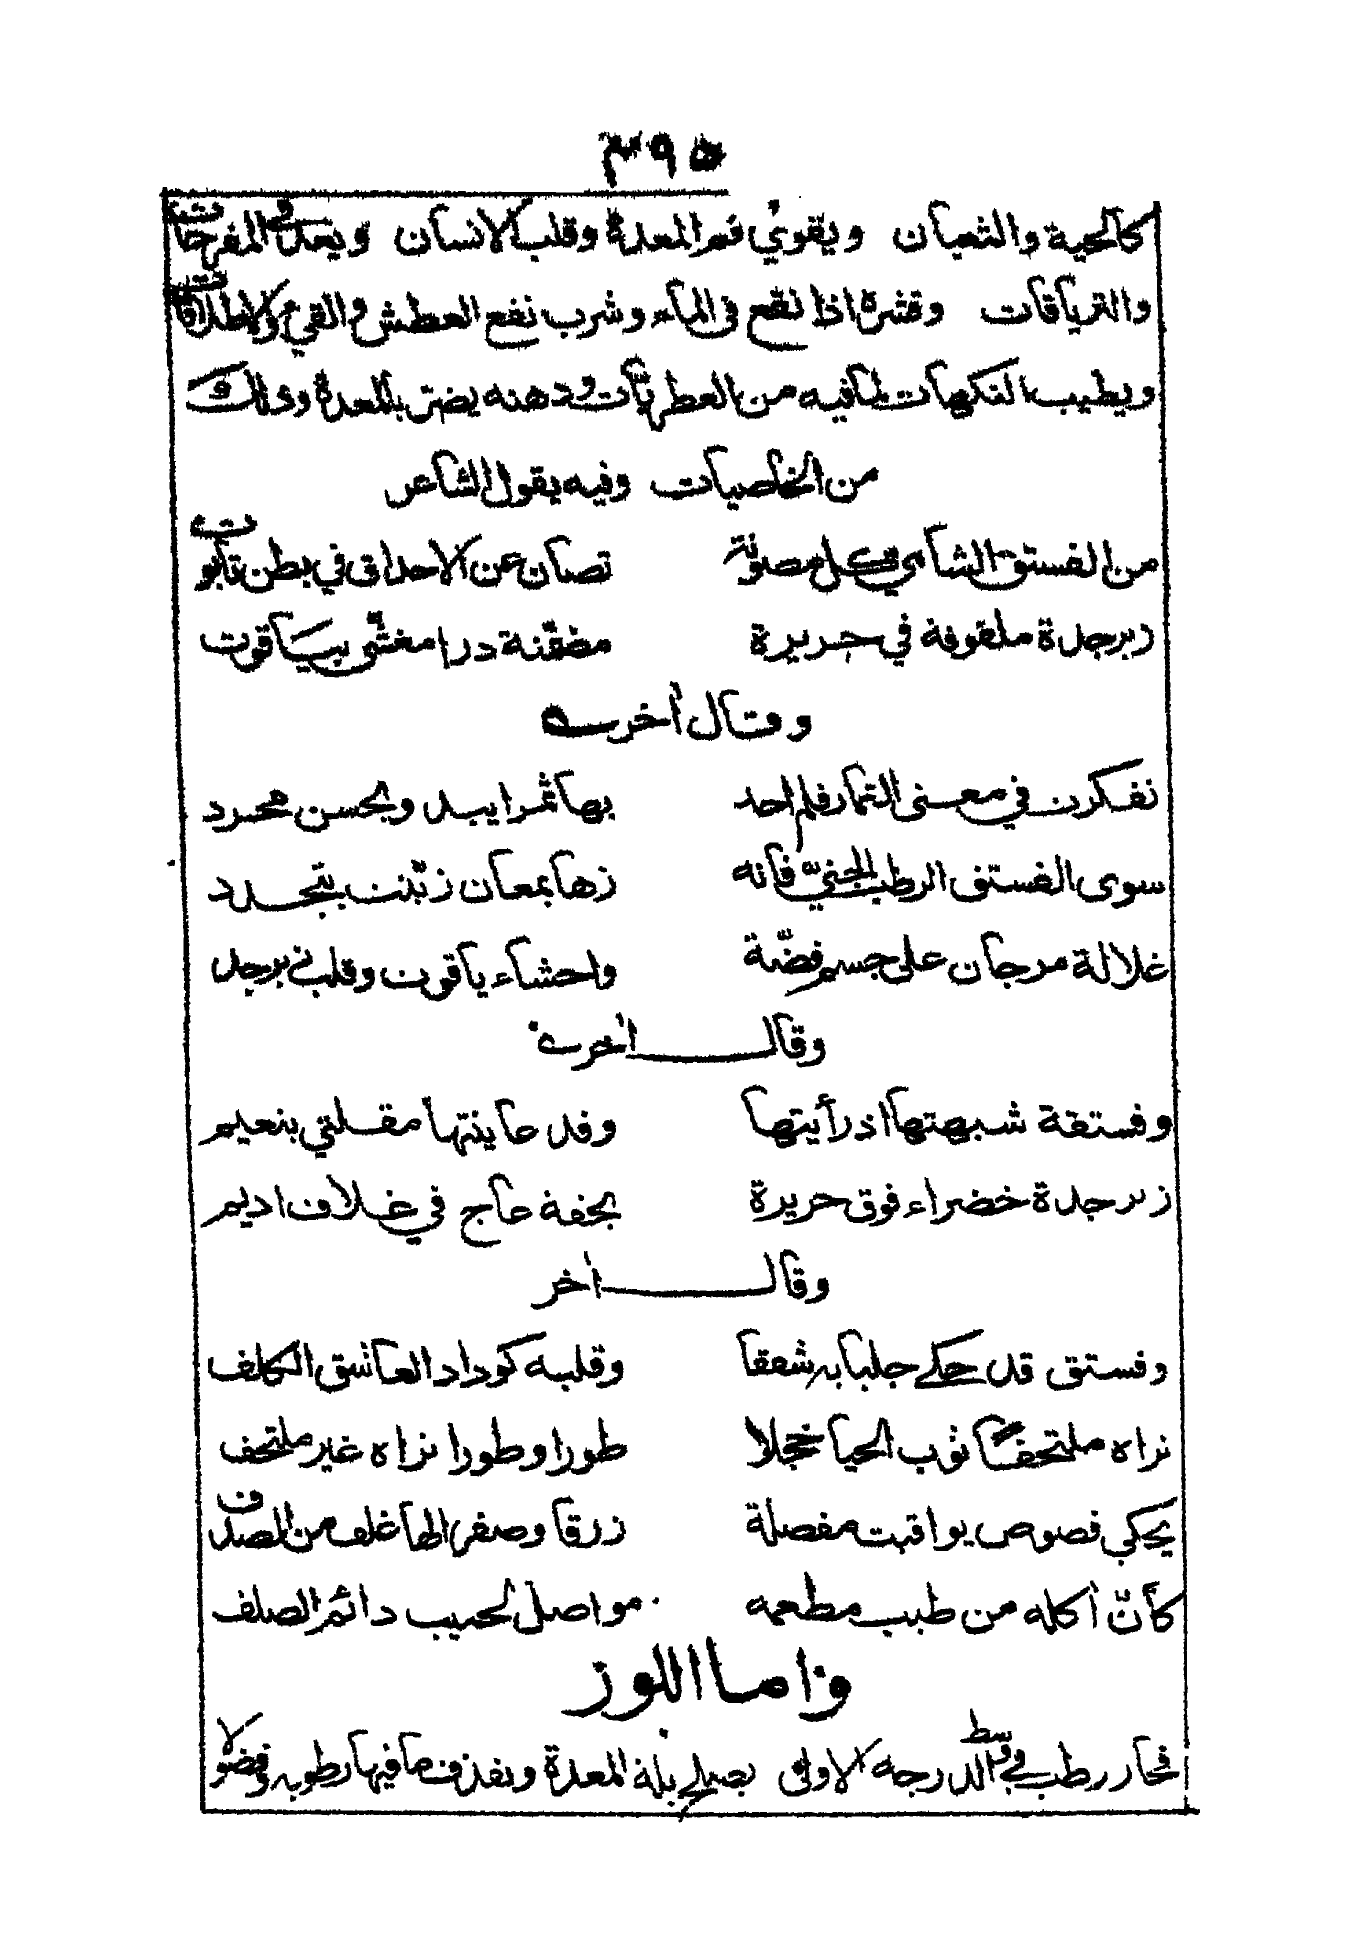 ٣٩٥
كالحية والثعبان ويقوي فم المعدة وقلب الانسان ويعد في المفرحات
والترياقات وقشره اذا نقع في الماء وشرب نفع العطش والقيء والاطلاقات
ويطيب النكهات لما فيه من العطريات ودهنه يضر بالمعدة وذلك
من الخاصيات وفيه يقول الشاعر
من الفستق الشامي كل مصونة تصان عن الاحداق في بطن تابوت
زبرجدة ملفوفة في حريرة مضمنة درا مغشى بياقوت
وقال اخر
تفكرت في معنى الثمار فلم اجد بها ثمرا يبد وبحسن مجرد
سوى الفستق الرطب الجني فانه زها بمعان زينت بتجرد
غلالة مرجان على جسم فضة واحشاء ياقوت وقلب زبرجد
وقال اخر
وفستقة شبهتها اذ رأيتها وقد عاينتها مقلتي بنعيم
زبرجدة خضراء فوق حريرة بحقة عاج في غلاف اديم
وقال اخر
وفستق قد حكى جلبابه شفقا وقلبه كوداد العاشق الكلف
تراه ملتحفا ثوب الحيا خجلا طورا وطورا تراه غير ملتحف
يحكي فصوص يواقيت مفصلة زرقا وصفر الها غلف من الصدف
كأنّ أكله من طيب مطعمه مواصل لحبيب دائم الصلف
واما اللوز
فحار رطب في وسط الدرجه الاولى يصلح بلة المعدة ويقذف ما فيها رطوبه وفضولا